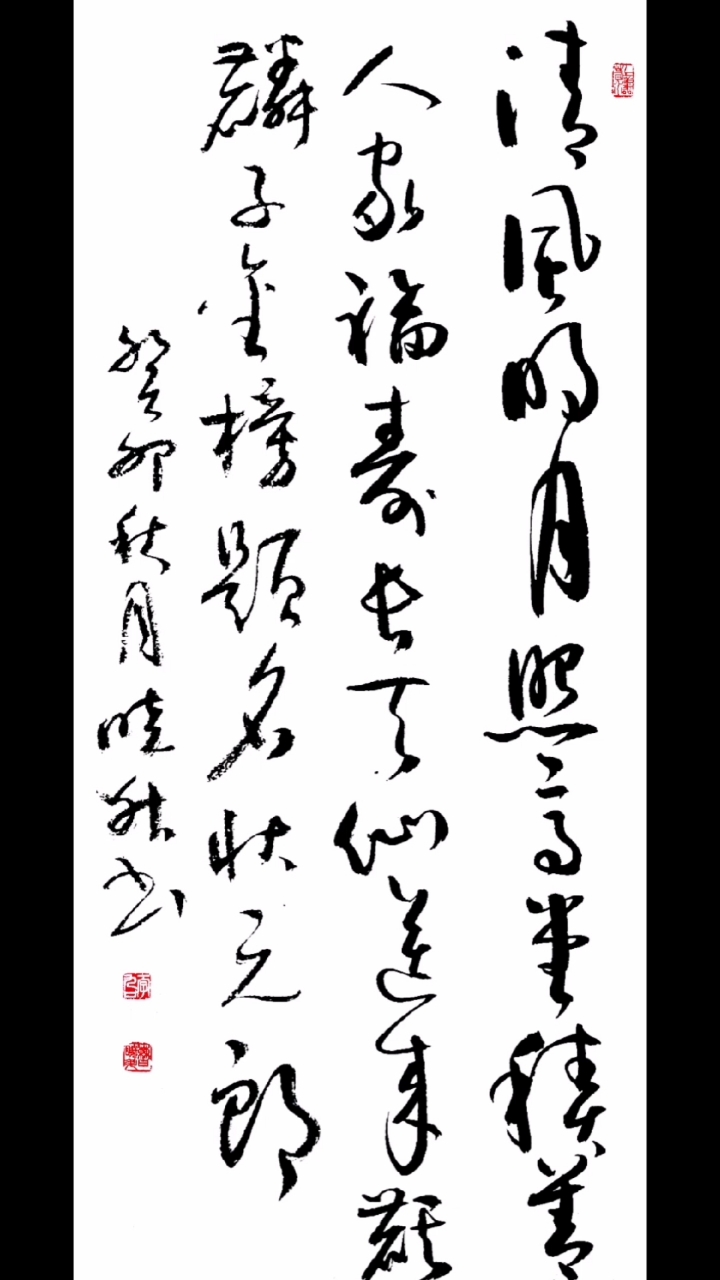 清風明月照高堂積善
人家福壽長天仙送來麒
麟子金榜題名狀元郎
癸卯秋月曉秋书